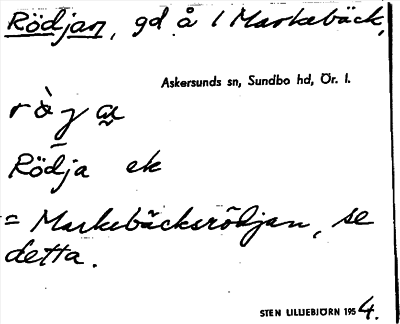 Rödjan, gd å 1 Markebäck,
Askersunds sn, Sundbo hd, Ör. l.
Rödja ek
= Markebäcksrödjan, se
detta.
STEN LILLIEBJÖRN 1954.